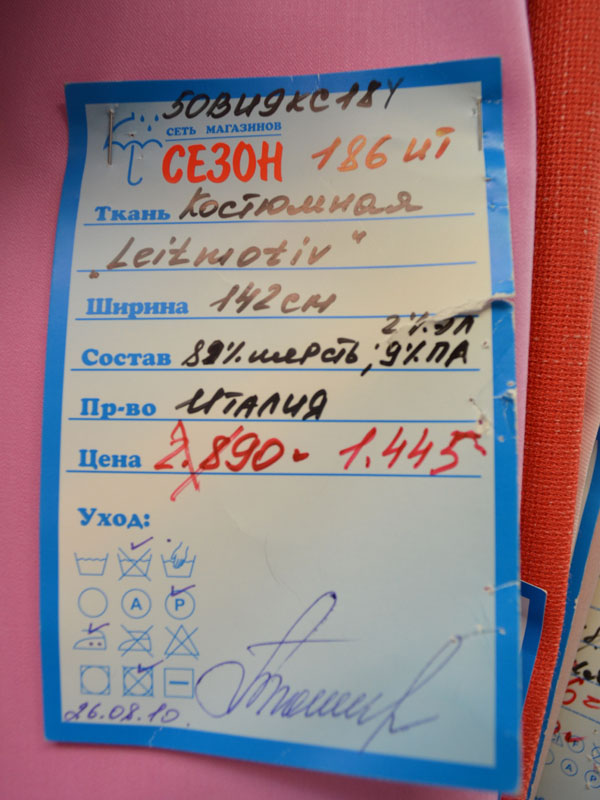 50ВИЯХС18Y
СЕТЬ МАГАЗИНОВ
СЕЗОН 186 ИТ
Ткань Костюмная
"Leitmotiv"
Ширина 142 см
2% ЭЛ
Состав 89% шерсть; 9% ПА
Пр-во ИТАЛИЯ
Цена 2.890- 1.445
Уход:
A P
26.08.10.